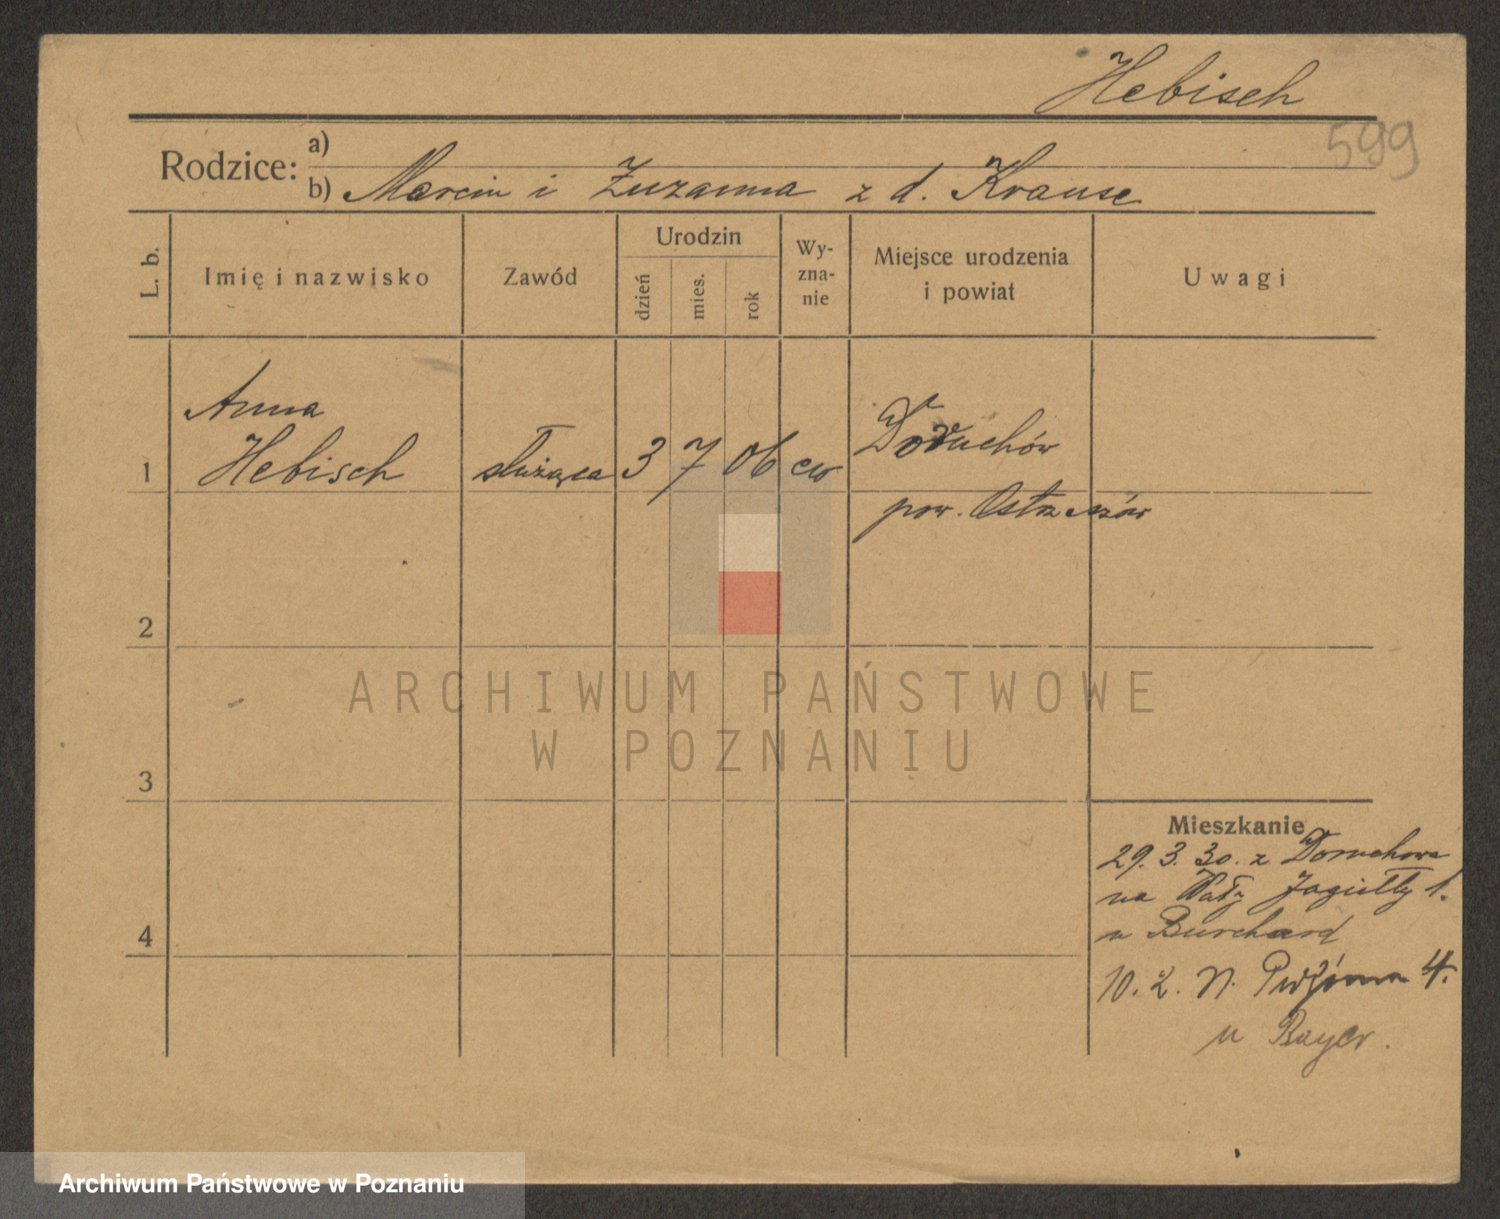 Hebisch
599
Rodzice: a)
b) Marcin i Zuzanna z d. Krause
L. b.
Imię i nazwisko
Zawód
Urodzin
dzień
mies.
rok
Wy-
zna-
nie
Miejsce urodzenia
i powiat
Uwagi
Anna
1 Hebisch służąca 3 7 06 ew Doruchów
pow. Ostrzeszów
2
3
4
Mieszkanie
29. 3. 30. z Doruchowa
na Wały Jagiełły 1.
u Burchard
10. 2. 4.
u Bayer.
ARCHIWUM PAŃSTWOWE
W POZNANIU
Archiwum Państwowe w Poznaniu